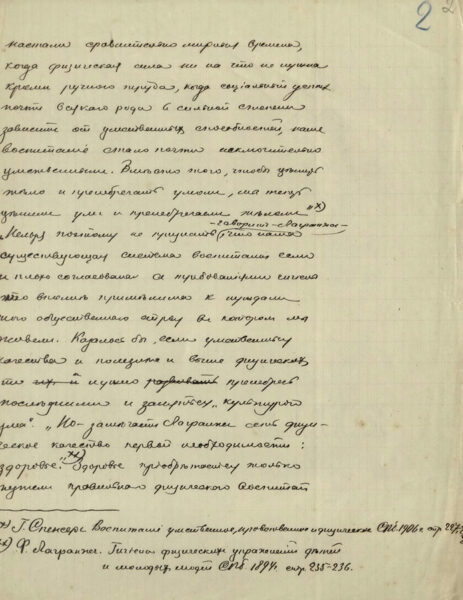 2
2
настали сравнительно мирныя времена,
когда физическая сила ни на что не нужна
кроме ручного труда, когда социальный успех
почти всякаго рода в сильной степени
зависит от умственных способностей, наше
воспитание стало почти исключительно
умственным. Вместо того, чтобы ценить
тело и пренебрегать умом, мы теперь
ценим ум и пренебрегаем телом" х)
- говорит Лагранж -
"Нельзя поэтому не признать, что наша
существующая система воспитания если
и плохо согласована с требованиями гигиены
то вполне применима к нуждам
того общественного строя в котором мы
живем. Казалось бы, если умственныя
качества и полезнее и выше физических,
то и нужно развивать пренебречь
последними и заняться "культурой
ума". "Но - замечает Лагранж есть физи-
ческое качество первой необходимости:
здоровье." хх) Здоровье приобретается только
путем правильного физического воспитан
х) Г. Спенсер. Воспитание умственное, нравственное и физическое СПб. 1906г. стр.
хх) Ф. Лагранж. Гигиена физических упражнений детей
и молодых людей СПб. 1894г. стр. 235-236.